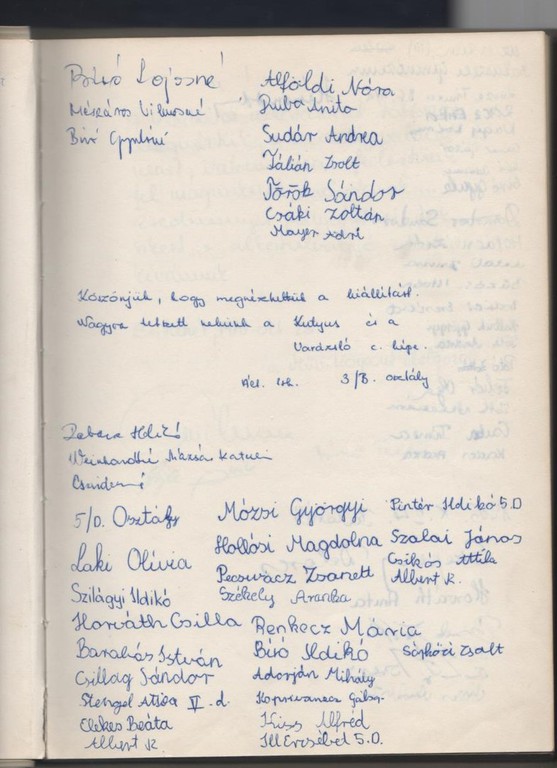 Bíró Lajosné
Mészáros Vilmosné
Bíró
Alföldi Nóra
Ruba Anita
Sudár Andrea
Tálián Zsolt
Török Sándor
Csáki Zoltán
Mayer
Köszönjük, hogy megnézhettük a kiállítást.
Nagyon tetszett nekünk a Kutyus és a
Varázsló c. képe.
3/B. osztály
Ildikó
Weinhardtné Mázsá Katalin
5/D. Osztály
Laki Olívia
Szilágyi Ildikó
Horváth Csilla
Barabás István
Csillag Sándor
Stengel Attila V. d.
Elekes Beáta
Albert K.
Mózsi Györgyi
Hollósi Magdolna
Pecsvácz Zsanett
Székely Aranka
Renkecz Mária
Bíró Ildikó
Adorján Mihály
Koprivanacz Gábor
Kiss Alfréd
Ill Erzsébet 5.D.
Pintér Ildikó 5.D
Szalai János
Csikós Attila
Albert K.
Sárközi Zsolt